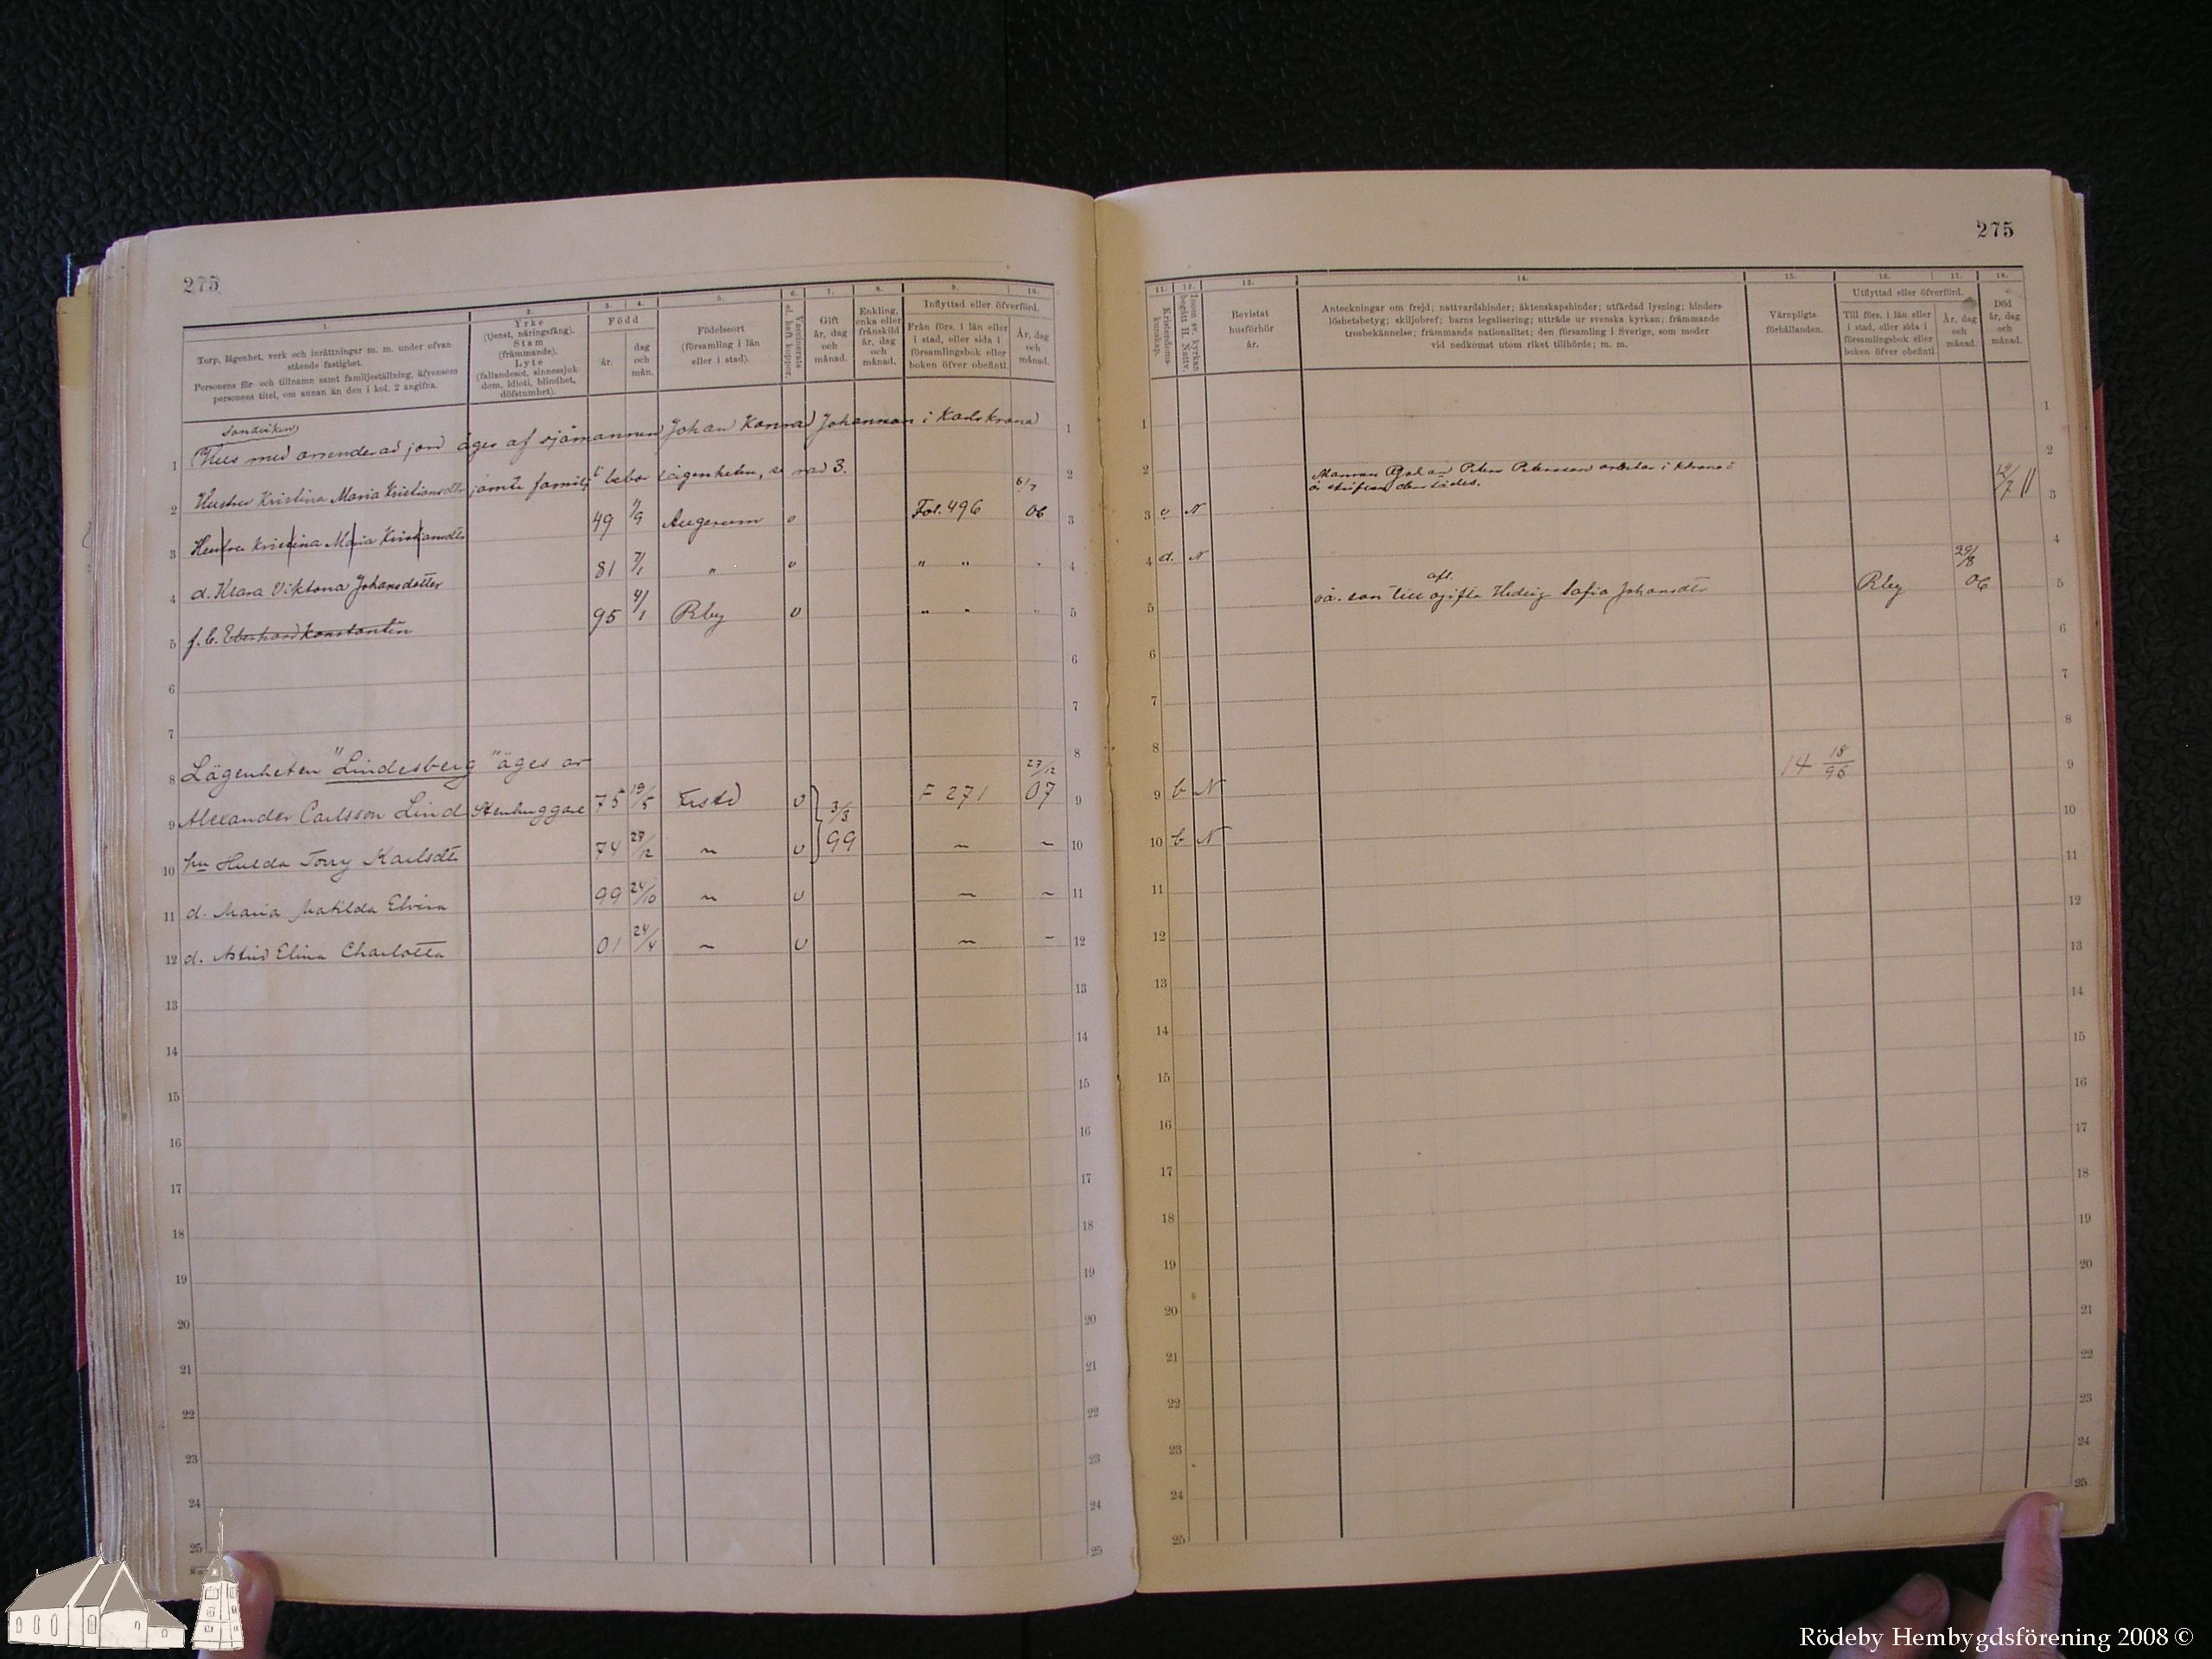 275
1.
2.
3.
4.
5.
6.
7.
8.
9.
10.
Torp, lägenhet, verk och inrättningar m. m. under ofvan
stående fastighet.
Personens för- och tillnamn samt familjeställning, äfvensom
personens titel, om annan än den i kol. 2 angifna.
Yrke
(tjenst, näringsfång).
Stam
(främmande).
Lyte
(fallandesot, sinnessjuk-
dom, idioti, blindhet,
döfstumhet).
Född
år.
dag
och
mån.
Födelseort
(församling i län
eller i stad).
Vaccinerats
el. haft koppor.
Gift
år, dag
och
månad.
Enkling,
enka eller
frånskild
år, dag
och
månad.
Inflyttad eller öfverförd.
Från förs. i län eller
i stad, eller sida i
församlingsbok eller
boken öfver obefintl.
År, dag
och
månad.
Sandviken
1 Hus med arrenderad jord äges af sjömannen Johan Konrad Johannson i Karlskrona 1
2 Hustru Kristina Maria Kristiansdtr jämte familj bebor lägenheten, se rad 3. 2
3 Hustru Kristina Maria Kristiansdtr 49 7/9 Augerum v Fol. 496 6/7 06 3
4 d. Klara Viktoria Johansdotter 81 7/1 " v " " " 4
5 f. b. Eberhard Konstantin 95 4/1 Rby v " " " 5
6 6
7 7
8 Lägenheten "Lindesberg" äges av 8
9 Alexander Carlsson Lind Stenhuggare 75 19/5 v 3/3 99 F 271 27/12 07 9
10 hu Hulda Tony Karlsdtr 74 27/12 " v " " 10
11 d. Maria Matilda Elvira 99 24/10 " v " " 11
12 d. Astrid Elina Charlotta 01 24/4 " v " " 12
13 13
14 14
15 15
16 16
17 17
18 18
19 19
20 20
21 21
22 22
23 23
24 24
25 25
275
11.
12.
13.
14.
15.
16.
17.
18.
Kristendoms-
kunskap.
Inom sv. kyrkan
begått H. Nattv.
Bevistat
husförhör
år.
Anteckningar om frejd; nattvardshinder; äktenskapshinder; utfärdad lysning; hinders-
löshetsbetyg; skiljobref; barns legalisering; utträde ur svenska kyrkan; främmande
trosbekännelse; främmande nationalitet; den församling i Sverige, som moder
vid nedkomst utom riket tillhörde; m. m.
Värnpligts-
förhållanden.
Utflyttad eller öfverförd.
Till förs. i län eller
i stad, eller sida i
församlingsbok eller
boken öfver obefintl.
År, dag
och
månad.
Död
år, dag
och
månad.
1 1
2 2
Mannen Johan Peter Petersson arbetar i Khrona o
är skrifven därstädes.
3 v N 12/7 11 3
4 d. N 4
5 oä. son till afl. ogifta Hedvig Sofia Johansdtr Rby 29/8 06 5
6 6
7 7
8 8
9 b N 14 18/95 9
10 b N 10
11 11
12 12
13 13
14 14
15 15
16 16
17 17
18 18
19 19
20 20
21 21
22 22
23 23
24 24
25 25
Rödeby Hembygdsförening 2008 ©